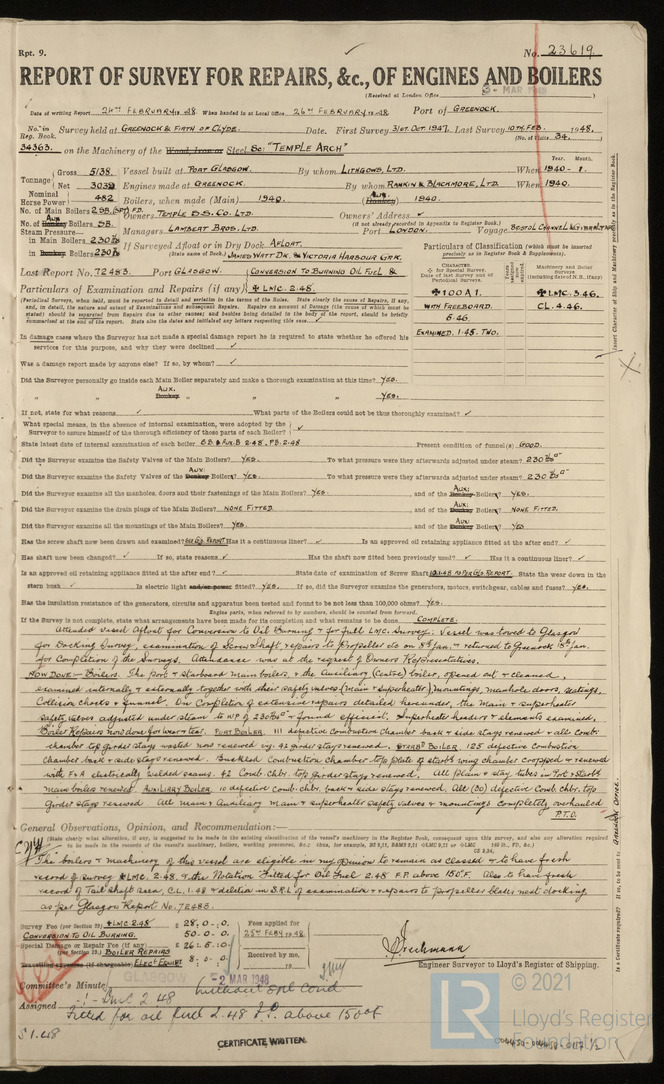 Rpt. 9.
No. 23619
REPORT OF SURVEY FOR REPAIRS, &c., OF ENGINES AND BOILERS
(Received at London Office 3- MAR 1948 )
Date of writing Report 26TH FEBRUARY 1948. When handed in at Local Office 26TH FEBRUARY 1948 Port of GREENOCK.
No. in Reg. Book. Survey held at GREENOCK & FIRTH OF CLYDE. Date. First Survey 31ST. OCT. 1947. Last Survey 10TH FEB. 1948.
(No. of Visits 34. )
34363. on the Machinery of the Wood, Iron or Steel Sc: "TEMPLE ARCH"
Tonnage Gross 5138 Vessel built at PORT GLASGOW. By whom LITHGOWS, LTD. When Year. Month. 1940 - 1.
Net 3032 Engines made at GREENOCK. By whom RANKIN & BLACKMORE, LTD. When 1940.
Nominal Horse Power 482 Boilers, when made (Main) 1940. (Aux. Donkey) 1940.
No. of Main Boilers 2SB. FD. Owners TEMPLE S.S. CO. LTD. Owners' Address
No. of Aux. Donkey Boilers SB. (if not already recorded in Appendix to Register Book.)
Steam Pressure— Managers LAMBERT BROS. LTD. Port LONDON. Voyage
in Main Boilers 230 lbs If Surveyed Afloat or in Dry Dock. AFLOAT.
in Aux. Donkey Boilers 230 lbs (State name of Dock.) JAMES WATT DK. & VICTORIA HARBOUR GRK.
Particulars of Classification (which must be inserted precisely as in Register Book & Supplements).
Last Report No. 72483. Port GLASGOW. CONVERSION TO BURNING OIL FUEL &
Particulars of Examination and Repairs (if any) ✠ LMC. 2.48.
CHARACTER. ✠ for Special Survey. Date of last Survey and of Periodical Survey.
Machinery and Boiler Surveys (including date of N.B., if any)
✠ 100 A1. ✠ LMC. 3.46.
WITH FREEBOARD. CL. 4.46.
6.46.
EXAMINED. 1.48. TWO.
(Periodical Surveys, when held, must be reported in detail and seriatim in the terms of the Rules. State clearly the cause of Repairs, if any,
In damage cases where the Surveyor has not made a special damage report he is required to state whether he offered his
services for this purpose, and why they were declined
Was a damage report made by anyone else? If so, by whom?
Did the Surveyor personally go inside each Main Boiler separately and make a thorough examination at this time? YES.
" " Aux. Donkey " " " YES.
If not, state for what reasons What parts of the Boilers could not be thus thoroughly examined?
What special means, in the absence of internal examination, were adopted by the
Surveyor to assure himself of the thorough efficiency of those parts of each Boiler?
State latest date of internal examination of each boiler Present condition of funnel(s) GOOD.
Did the Surveyor examine the Safety Valves of the Main Boilers? YES. To what pressure were they afterwards adjusted under steam? 230 lbs
Did the Surveyor examine the Safety Valves of the Aux: Donkey Boilers? YES. To what pressure were they afterwards adjusted under steam? 230 lbs
Did the Surveyor examine all the manholes, doors and their fastenings of the Main Boilers? YES. , and of the Aux: Donkey Boilers? YES.
Did the Surveyor examine the drain plugs of the Main Boilers? NONE FITTED. , and of the Aux: Donkey Boilers? NONE FITTED.
Did the Surveyor examine all the mountings of the Main Boilers? YES. , and of the Aux: Donkey Boilers? YES
Has the screw shaft now been drawn and examined? SEE GLS. REPORT Has it a continuous liner? Is an approved oil retaining appliance fitted at the after end?
Has shaft now been changed? If so, state reasons Has the shaft now fitted been previously used? Has it a continuous liner?
Is an approved oil retaining appliance fitted at the after end? State date of examination of Screw Shaft 10.1.48 AS PER GLS REPORT. State the wear down in the
stern bush Is electric light and/or power fitted? YES. If so, did the Surveyor examine the generators, motors, switchgear, cables and fuses? YES.
Has the insulation resistance of the generators, circuits and apparatus been tested and found to be not less than 100,000 ohms? YES.
Engine parts, when referred to by numbers, should be counted from forward.
If the Survey is not complete, state what arrangements have been made for its completion and what remains to be done. COMPLETE.
Attended Vessel Afloat for Conversion to Oil Burning & for full LMC. Survey. Vessel was towed to Glasgow
for Docking Survey, examination of Screw Shaft, repairs to Propeller etc on 8th Jan. & returned to Greenock 15th Jan.
for Completion of the Surveys. Attendance was at the request of Owners Representatives.
NOW DONE:- Boilers. The port & starboard main boilers, & the Auxiliary (Centre) boiler, opened out & cleaned,
examined internally & externally together with their safety valves (main & superheater), mountings, manhole doors, seatings,
Collision chocks & funnel. On Completion of extensive repairs detailed hereunder, the Main & superheater
safety valves adjusted under steam to WP of 230 lbs & found efficient. Superheater headers & elements examined.
Boiler Repairs now done for wear & tear. PORT BOILER. 111 defective Combustion chamber back & side stays renewed & all comb:
chamber top girder stays wasted now renewed eg. 42 girder stays renewed. STARBD BOILER. 125 defective combustion
Chamber back & side stays renewed. Buckled Combustion chamber top plate of starbd wing chamber cropped & renewed
with F & A electrically welded seams. 42 Comb. Chbr. top girder stays renewed. All plain & stay tubes in Port & Starbd
main boilers renewed. AUXILIARY BOILER. 10 defective Comb. Chbr. back & side stays renewed. All (30) defective Comb. chbr. top
Girder stays renewed. All Main & Auxiliary Main & superheater safety valves & mountings completely overhauled
P.T.O.
General Observations, Opinion, and Recommendation:—
(State clearly what alteration, if any, is suggested to be made in the existing classification of the vessel's machinery in the Register Book, consequent upon this survey, and also any alteration required
The boilers & machinery of this vessel are eligible in my opinion to remain as classed & to have fresh
record of survey ✠LMC. 2.48, & the Notation Fitted for Oil Fuel 2.48 F.P. above 150°F. Also to have fresh
record of Tail Shaft drawn, C.L. 1.48 & deletion in S.R.L. of examination & repairs to propeller blades next docking
as per Glasgow Report No. 72483.
Survey Fee (per Section 29) ✠LMC 2.48 £ 28 : 0 : 0. Fees applied for
CONVERSION TO OIL BURNING. 50 : 0 : 0. 25TH FEBY 1948
Special Damage or Repair Fee (if any) (per Section 29.) BOILER REPAIRS £ 26 : 5 : 0. Received by me,
Travelling expenses (if chargeable) ELECT EQUIPT £ 8 : 0 : 0. 19
Engineer Surveyor to Lloyd's Register of Shipping.
Committee's Minute GLASGOW 2 MAR 1948
Assigned + LMC 2.48 without spl cond
Fitted for oil fuel 2.48 F.P. above 150°F
S 1.48
CERTIFICATE WRITTEN.
Insert Character of Ship and Machinery precisely as in the Register Book.
Is a Certificate required? If so, to be sent to GREENOCK OFFICE.
© 2021
LR
Lloyd's Register
Foundation